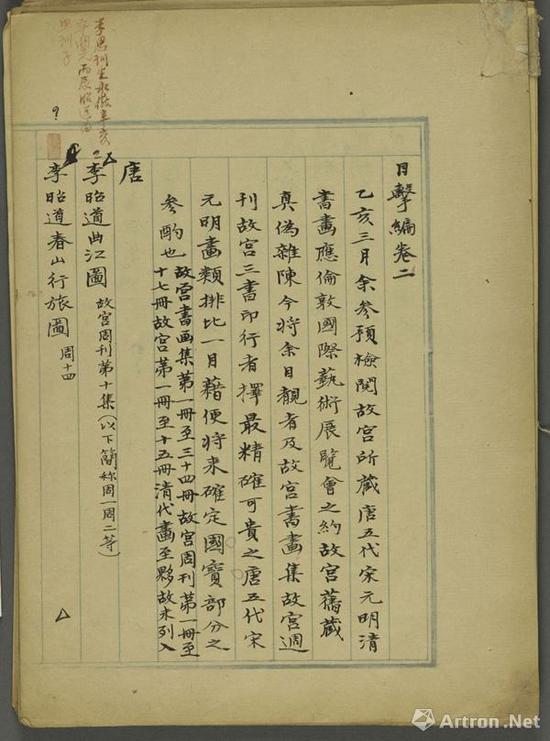 目擊編卷二
乙亥三月余參預檢閱故宮所藏唐五代宋元明清
書畫應倫敦國際藝術展覽會之約故宮舊藏
真偽雜陳今將余目觀者及故宮書畫集故宮週
刊故宮三書印行者擇最精確可貴之唐五代宋
元明畫類排比一目藉便將來確定國寶部分之
參酌也 故宮書画集第一冊至三十四冊故宮周刊第一冊至
十七冊故宮第一冊至十五冊清代畫至夥故未列入
唐
李昭道曲江圖 故宮周刊第十集(以下簡称周一周二等)
李昭道春山行旅圖 周十四
Artron.Net